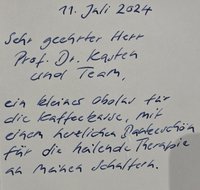 11. Juli 2024
Sehr geehrter Herr
Prof. Dr. Kasten
und Team,
ein kleines Obolus für
die Kaffeekasse, mit
einem herzlichen Dankeschön
für die heilende Therapie
an meinen Schultern.